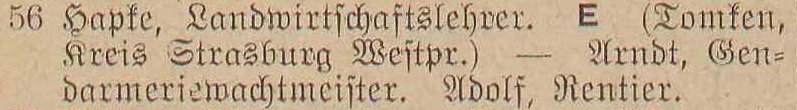 56 Hapke, Landwirtſchaftslehrer. E (Tomken,
Kreis Strasburg Weſtpr.) — Arndt, Gen⸗
darmeriewachtmeiſter. Adolf, Rentier.